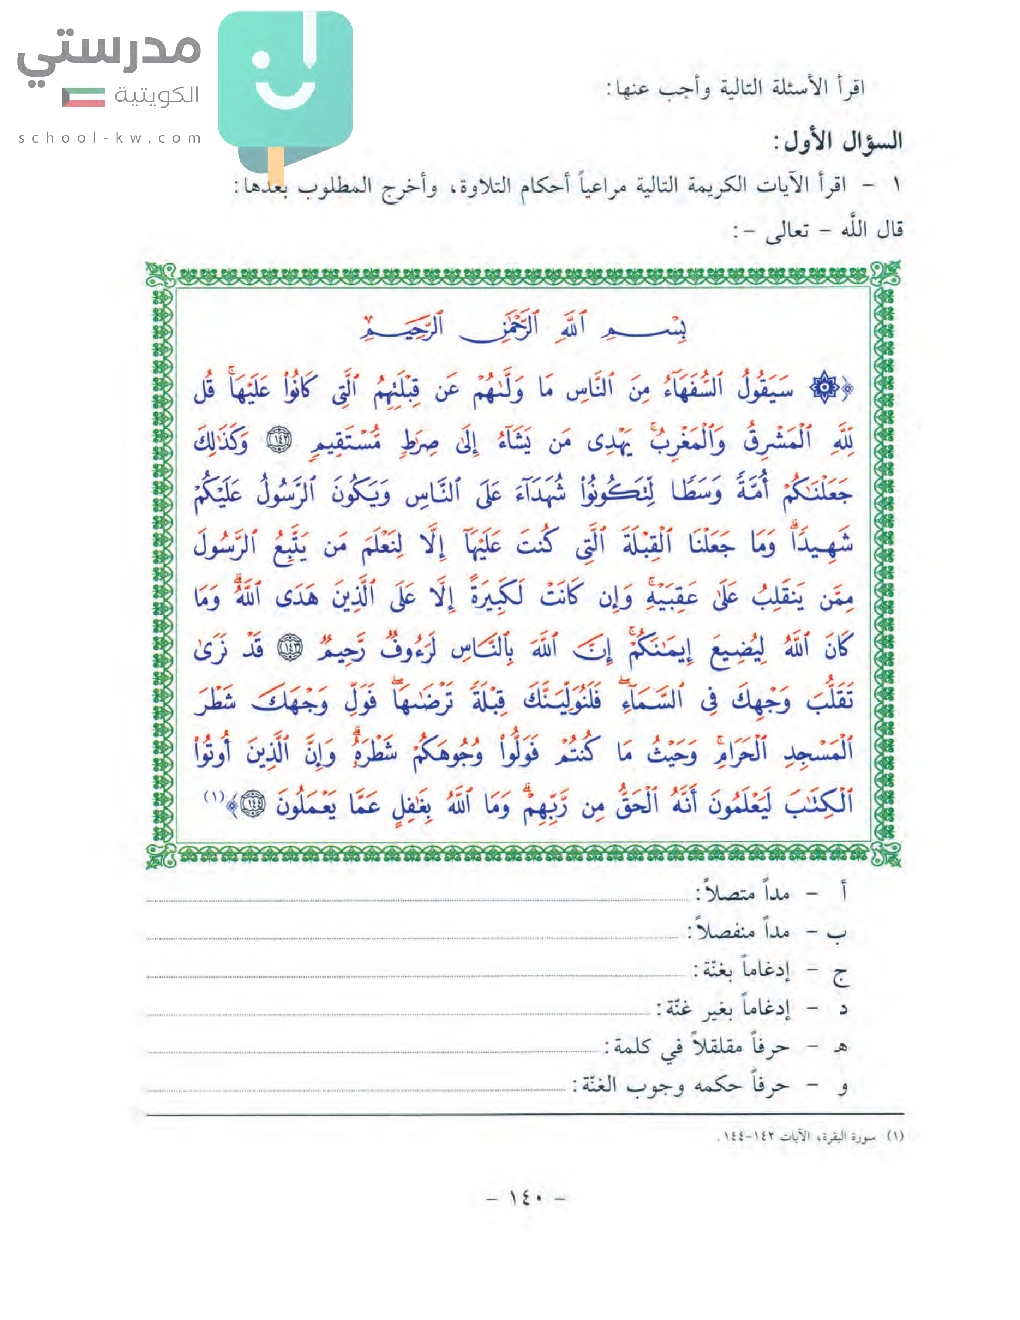 مدرستي
الكويتية
school-kw.com
اقرأ الأسئلة التالية وأجب عنها:
السؤال الأول:
١ - اقرأ الآيات الكريمة التالية مراعياً أحكام التلاوة، وأخرج المطلوب بعدها:
قال الله - تعالى -:
بِسْمِ ٱللَّهِ ٱلرَّحْمَٰنِ ٱلرَّحِيمِ
﴿۞ سَيَقُولُ ٱلسُّفَهَآءُ مِنَ ٱلنَّاسِ مَا وَلَّىٰهُمْ عَن قِبْلَتِهِمُ ٱلَّتِى كَانُوا۟ عَلَيْهَا ۚ قُل
لِّلَّهِ ٱلْمَشْرِقُ وَٱلْمَغْرِبُ ۚ يَهْدِى مَن يَشَآءُ إِلَىٰ صِرَٰطٍ مُّسْتَقِيمٍ ١٤٢ وَكَذَٰلِكَ
جَعَلْنَٰكُمْ أُمَّةً وَسَطًا لِّتَكُونُوا۟ شُهَدَآءَ عَلَى ٱلنَّاسِ وَيَكُونَ ٱلرَّسُولُ عَلَيْكُمْ
شَهِيدًا ۗ وَمَا جَعَلْنَا ٱلْقِبْلَةَ ٱلَّتِى كُنتَ عَلَيْهَآ إِلَّا لِنَعْلَمَ مَن يَتَّبِعُ ٱلرَّسُولَ
مِمَّن يَنقَلِبُ عَلَىٰ عَقِبَيْهِ ۚ وَإِن كَانَتْ لَكَبِيرَةً إِلَّا عَلَى ٱلَّذِينَ هَدَى ٱللَّهُ ۗ وَمَا
كَانَ ٱللَّهُ لِيُضِيعَ إِيمَٰنَكُمْ ۚ إِنَّ ٱللَّهَ بِٱلنَّاسِ لَرَءُوفٌ رَّحِيمٌ ١٤٣ قَدْ نَرَىٰ
تَقَلُّبَ وَجْهِكَ فِى ٱلسَّمَآءِ ۖ فَلَنُوَلِّيَنَّكَ قِبْلَةً تَرْضَىٰهَا ۚ فَوَلِّ وَجْهَكَ شَطْرَ
ٱلْمَسْجِدِ ٱلْحَرَامِ ۚ وَحَيْثُ مَا كُنتُمْ فَوَلُّوا۟ وُجُوهَكُمْ شَطْرَهُۥ ۗ وَإِنَّ ٱلَّذِينَ أُوتُوا۟
ٱلْكِتَٰبَ لَيَعْلَمُونَ أَنَّهُ ٱلْحَقُّ مِن رَّبِّهِمْ ۗ وَمَا ٱللَّهُ بِغَٰفِلٍ عَمَّا يَعْمَلُونَ ١٤٤﴾(١)
أ - مداً متصلاً:
ب - مداً منفصلاً:
ج - إدغاماً بغنّة:
د - إدغاماً بغير غنّة:
هـ - حرفاً مقلقلاً في كلمة:
و - حرفاً حكمه وجوب الغنّة:
(١) سورة البقرة، الآيات ١٤٢-١٤٤.
- ١٤٠ -